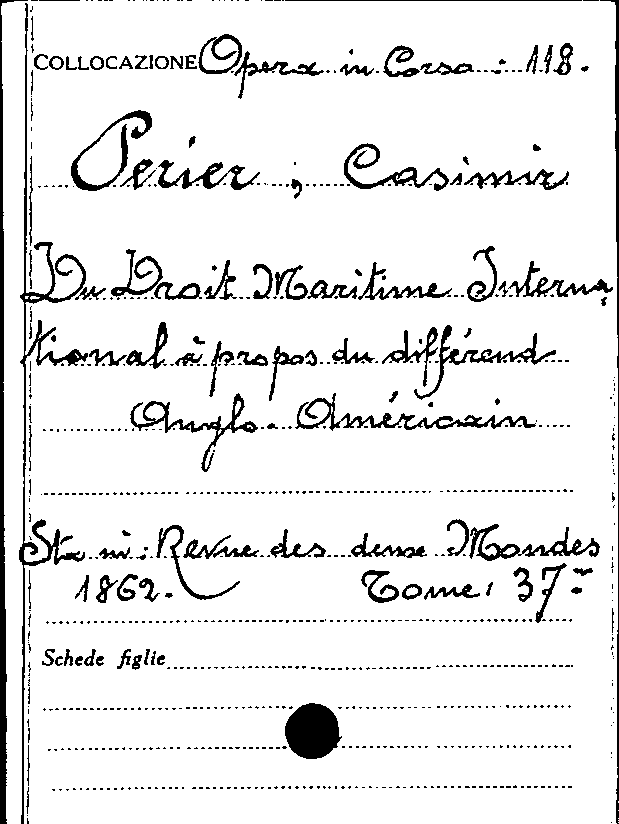 COLLOCAZIONE Opera in Corso: 118.
Perier, Casimir
Du Droit Maritime Interna-
tional à propos du différend
Anglo-Américain
Sta in: Revue des deux Mondes
1862. Tome: 37º
Schede figlie